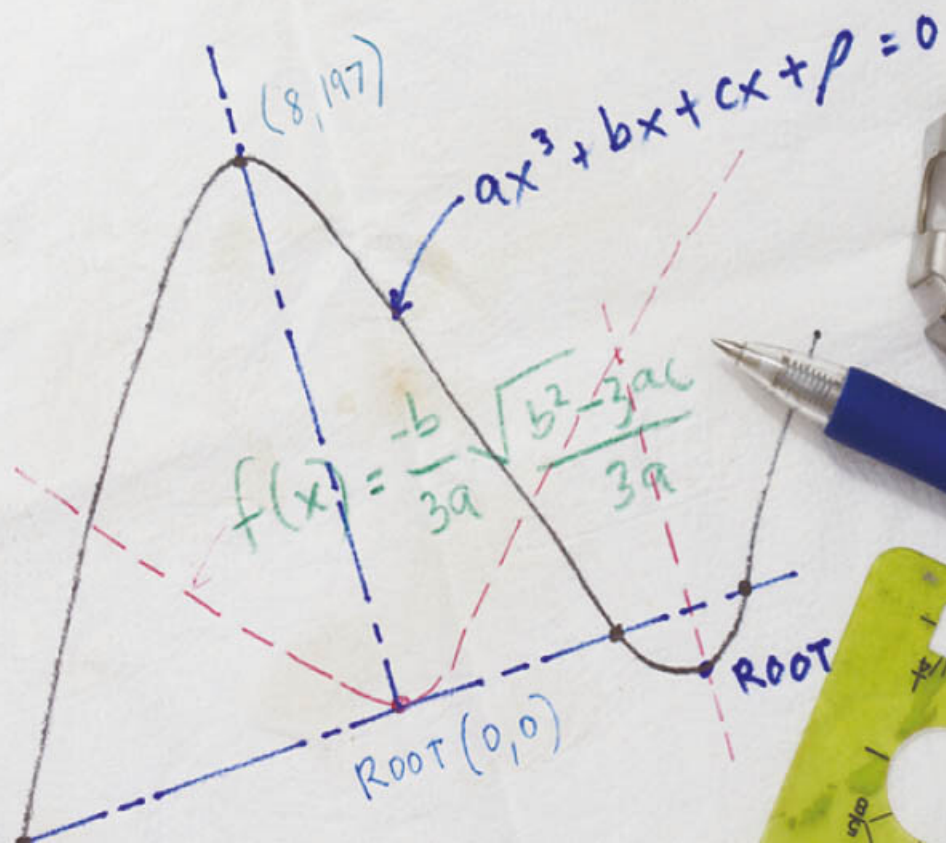 (8,197)
ax³+bx+cx+ρ=0
f(x)= -b/3a √b²-3ac/3a
ROOT
ROOT(0,0)